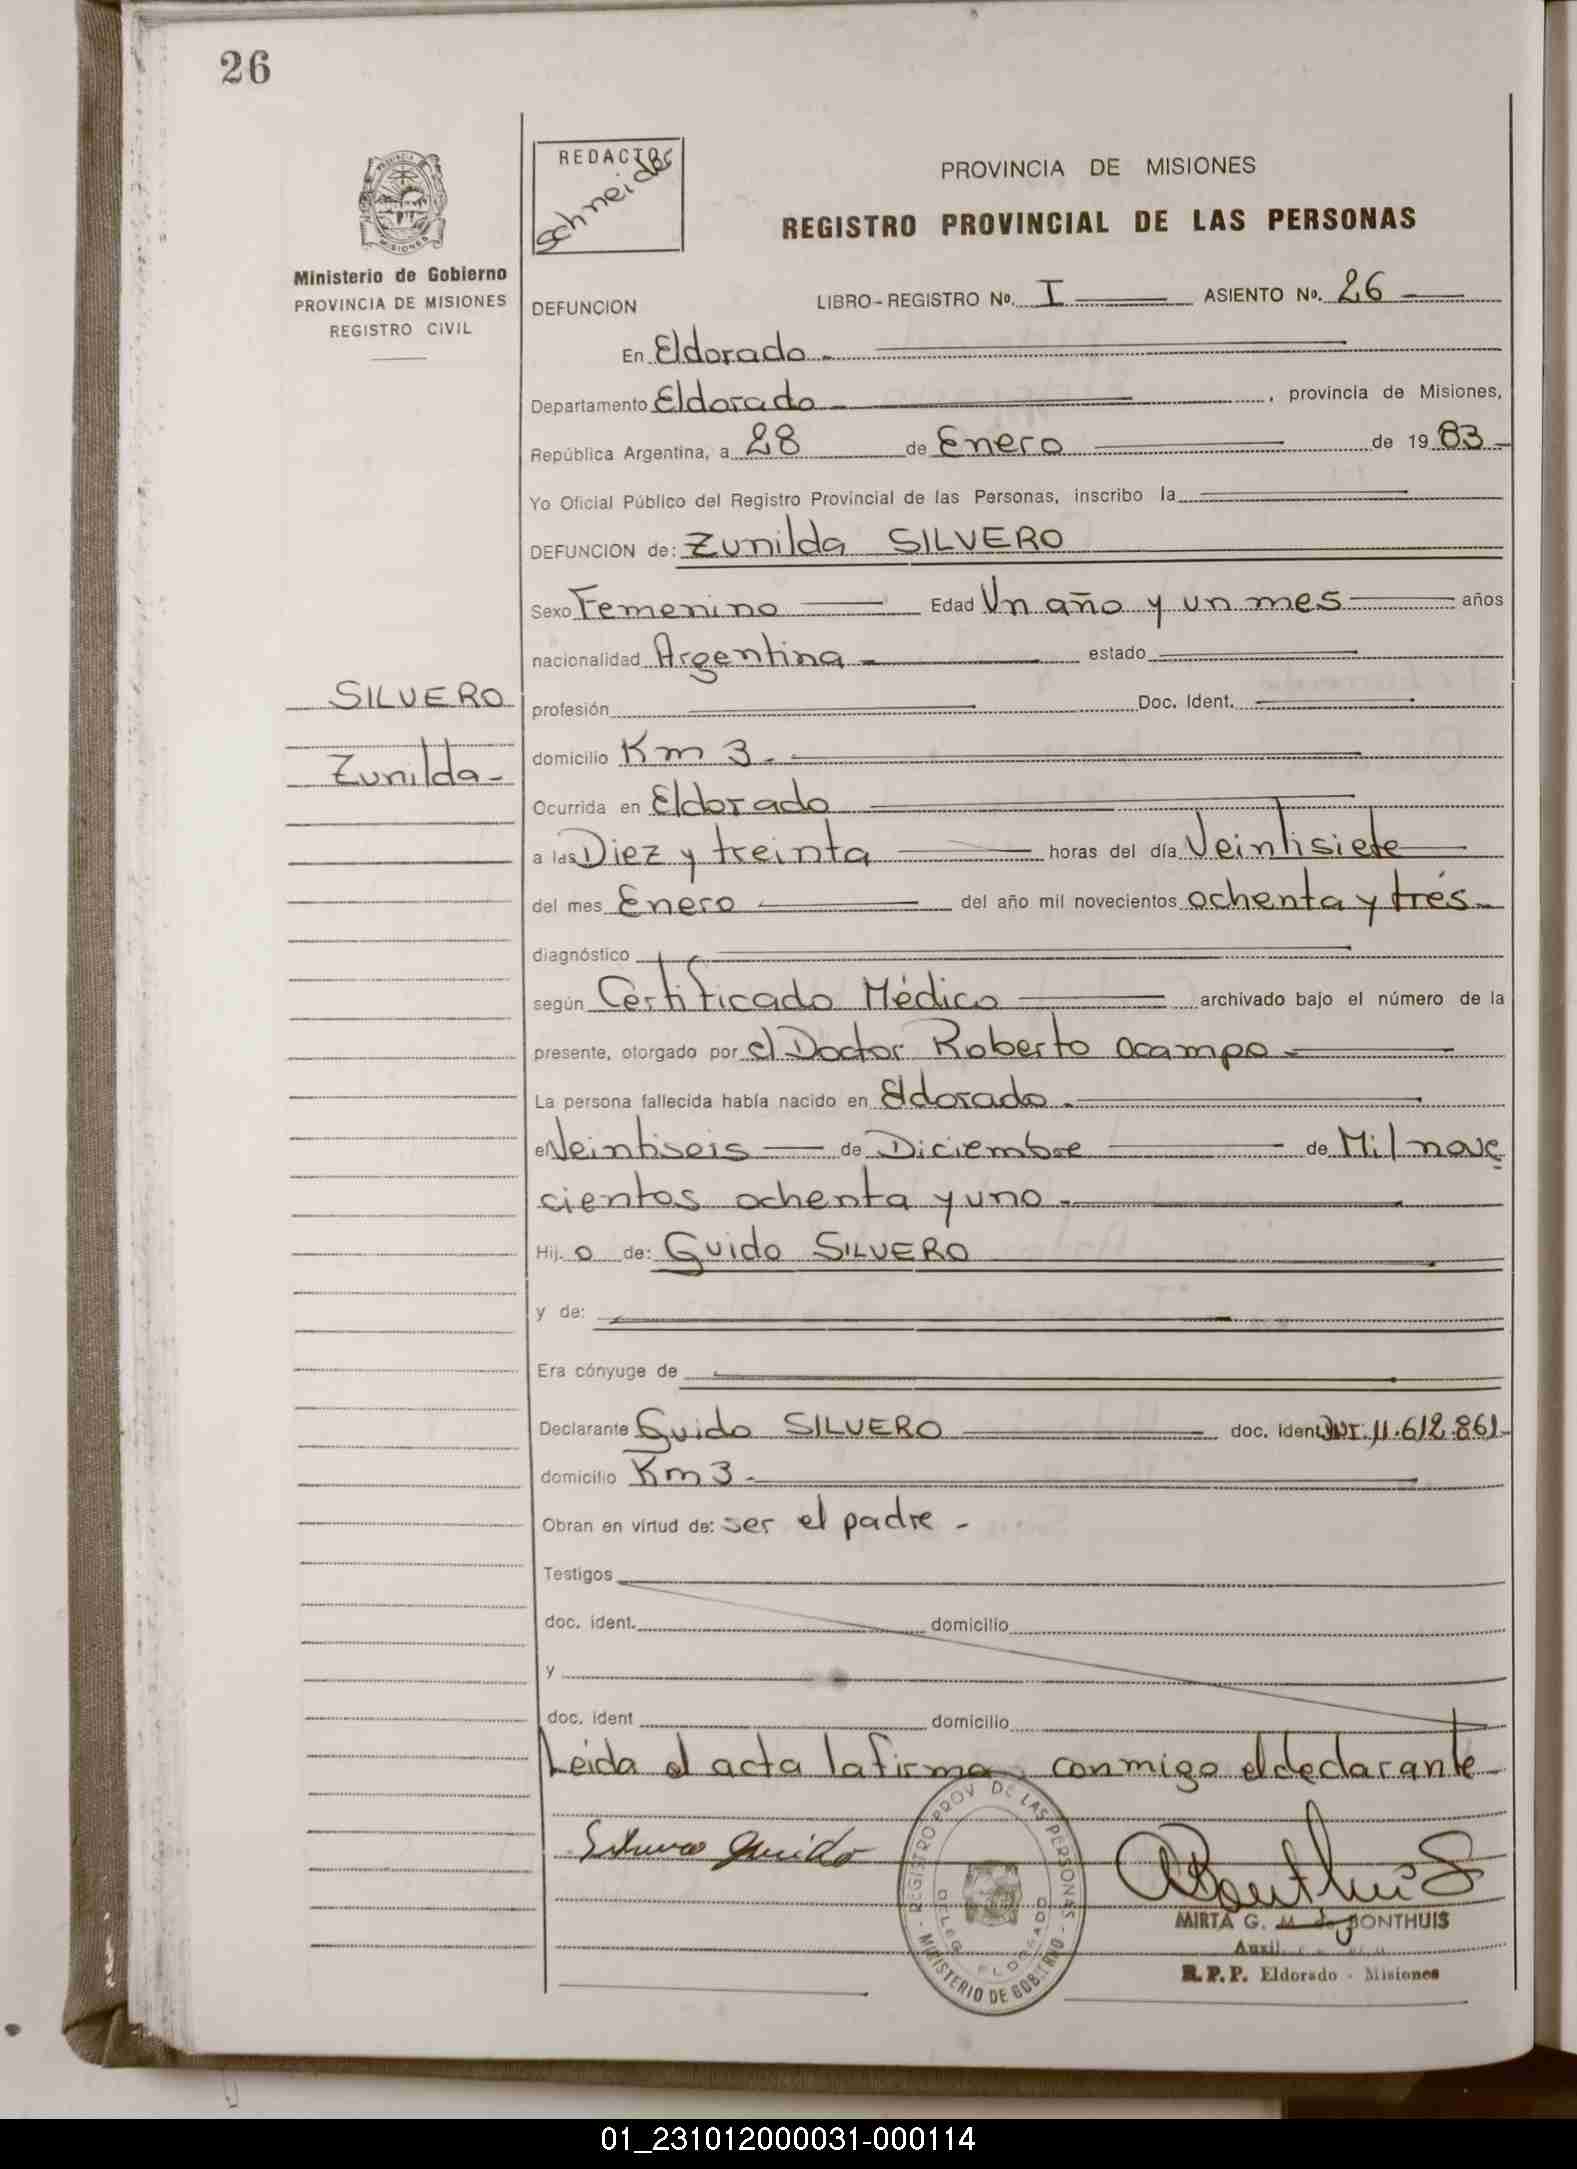 26
PROVINCIA
MISIONES
Ministerio de Gobierno
PROVINCIA DE MISIONES
REGISTRO CIVIL
REDACTOR
Schneider
PROVINCIA DE MISIONES
REGISTRO PROVINCIAL DE LAS PERSONAS
DEFUNCION LIBRO-REGISTRO No. I ASIENTO No. 26
En Eldorado.
Departamento Eldorado , provincia de Misiones,
República Argentina, a 28 de Enero de 1983
Yo Oficial Público del Registro Provincial de las Personas, inscribo la
DEFUNCION de: Zunilda SILVERO
Sexo Femenino Edad Un año y un mes años
nacionalidad Argentina estado
SILVERO
profesión Doc. Ident.
Zunilda
domicilio Km 3.
Ocurrida en Eldorado
a las Diez y treinta horas del día Veintisiete
del mes Enero del año mil novecientos ochenta y trés
diagnóstico
según Certificado Médico archivado bajo el número de la
presente, otorgado por el Doctor Roberto Ocampo
La persona fallecida había nacido en Eldorado.
el Veintiseis de Diciembre de Mil nove
cientos ochenta y uno
Hij o de: Guido SILVERO
y de:
Era cónyuge de
Declarante Guido SILVERO doc. ident. DNI. 11.612.861
domicilio Km 3
Obran en virtud de: ser el padre
Testigos
doc. ident. domicilio
y
doc. ident domicilio
Leida el acta la firma conmigo el declarante
Silvero Guido
REGISTRO PROV. DE LAS PERSONAS
DELEG. ELDORADO
MINISTERIO DE GOBIERNO
MIRTA G. BONTHUIS
Auxil.
R.P.P. Eldorado - Misiones
01_231012000031-000114